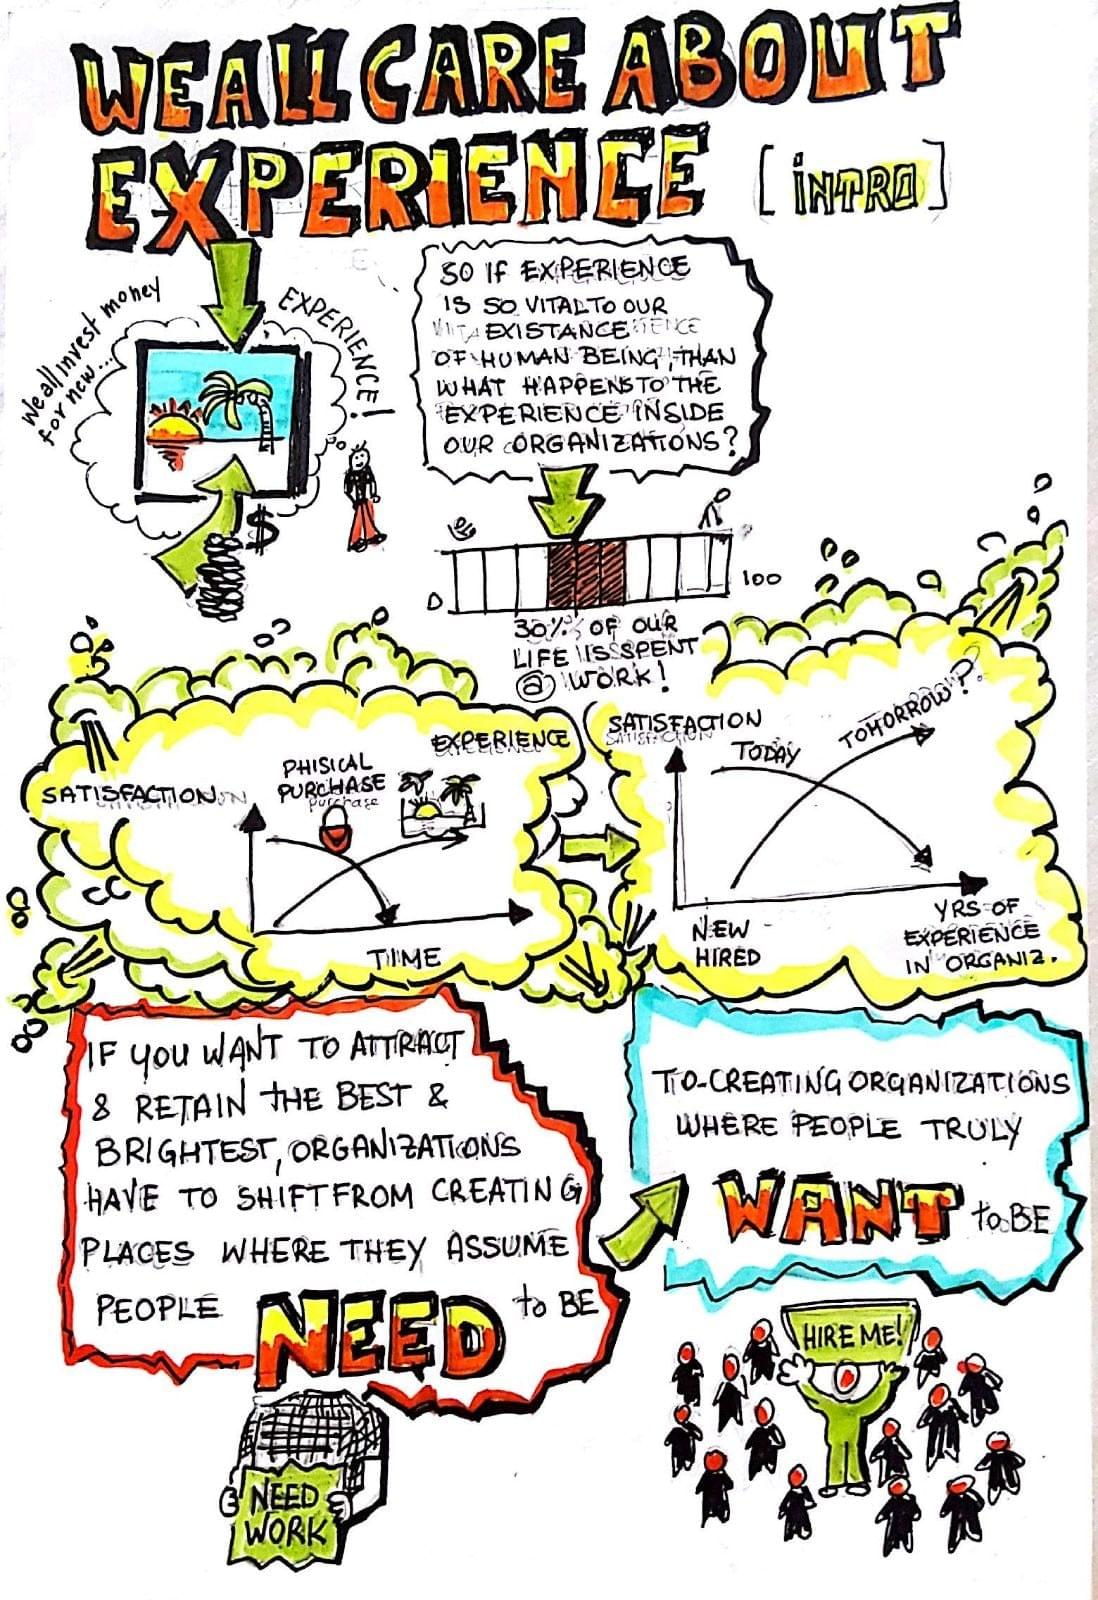 WE ALL CARE ABOUT
EXPERIENCE [INTRO]
We all invest money
for new...
EXPERIENCE!
$
SO IF EXPERIENCE
IS SO VITAL TO OUR
EXISTANCE
OF HUMAN BEING, THAN
WHAT HAPPENS TO THE
EXPERIENCE INSIDE
OUR ORGANIZATIONS?
0
100
30% OF OUR
LIFE IS SPENT
@ WORK!
SATISFACTION
PHISICAL
PURCHASE
purchase
EXPERIENCE
TIME
SATISFACTION
TODAY
TOMORROW?
NEW
HIRED
YRS OF
EXPERIENCE
IN ORGANIZ.
IF YOU WANT TO ATTRACT
& RETAIN THE BEST &
BRIGHTEST, ORGANIZATIONS
HAVE TO SHIFT FROM CREATING
PLACES WHERE THEY ASSUME
PEOPLE NEED to BE
TO-CREATING ORGANIZATIONS
WHERE PEOPLE TRULY
WANT to BE
NEED
WORK
HIRE ME!